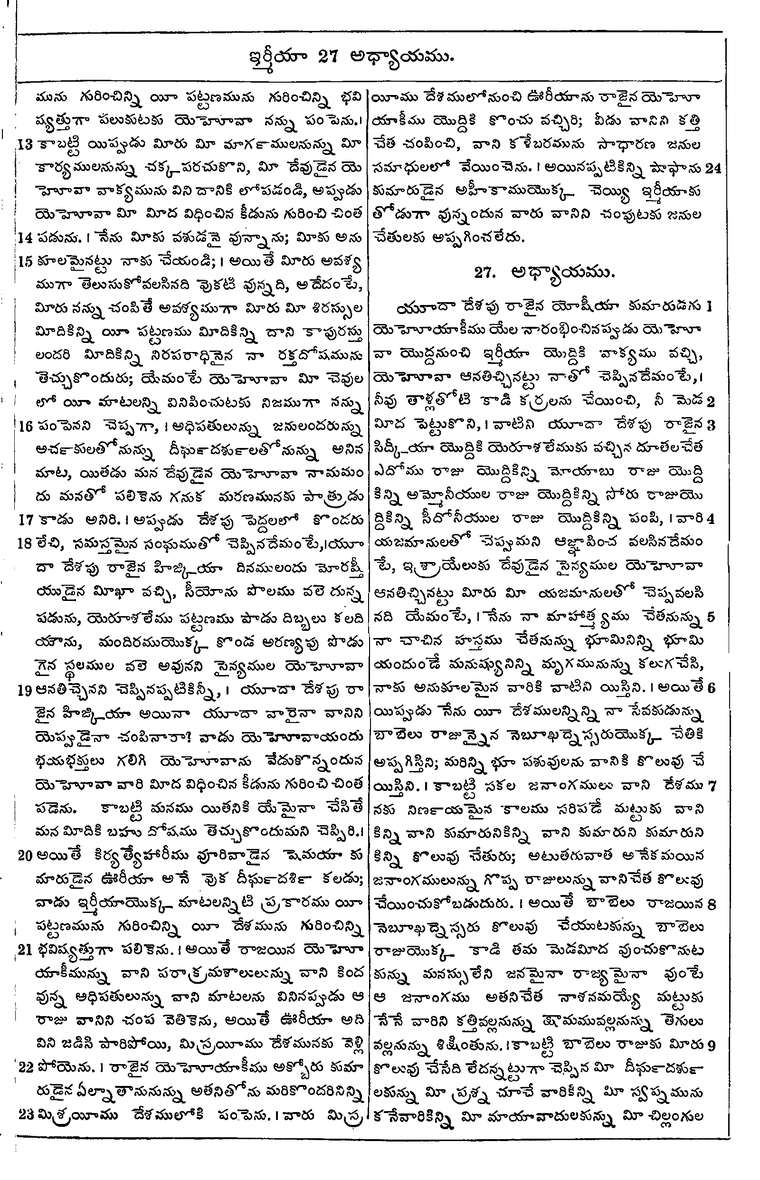 ఇర్మీయా 27 అధ్యాయము.
మును గురించిన్ని యీ పట్టణమును గురించిన్ని భవి
ష్యత్తుగా పలుకుటకు యెహోవా నన్ను పంపెను.।
13 కాబట్టి యిప్పుడు మీరు మీ మార్గములనున్ను మీ
కార్యములనున్ను చక్కపరచుకొని, మీ దేవుడైన యె
హోవా వాక్యమును విని దానికి లోపడండి, అప్పుడు
యెహోవా మీ మీద విధించిన కీడును గురించి చింత
14 పడును.। నేను మీకు వశుడనై వున్నాను; మీకు అను
15 కూలమైనట్టు నాకు చేయండి;। అయితే మీరు అవశ్య
ముగా తెలుసుకోవలసినది వొకటి వున్నది, అదేదంటే,
మీరు నన్ను చంపితే అవశ్యముగా మీరు మీ శిరస్సుల
మీదికిన్ని యీ పట్టణము మీదికిన్ని దాని కాపురస్తు
లందరి మీదికిన్ని నిరపరాధినైన నా రక్తదోషమును
తెచ్చుకొందురు; యేమంటే యెహోవా మీ చెవుల
లో యీ మాటలన్ని వినిపించుటకు నిజముగా నన్ను
16 పంపెనని చెప్పగా,। అధిపతులున్ను జనులందరున్ను
అర్చకులతోనున్ను దీర్ఘదర్శులతోనున్ను అనిన
మాట, యితడు మన దేవుడైన యెహోవా నామమం
దు మనతో పలికెను గనుక మరణమునకు పాత్రుడు
17 కాడు అనిరి.। అప్పుడు దేశపు పెద్దలలో కొందరు
18 లేచి, సమస్తమైన సంఘముతో చెప్పినదేమంటే,।యూ
దా దేశపు రాజైన హిజ్కియా దినములందు మోరష్తీ
యుడైన మీఖా వచ్చి, సీయోను పొలము వలె దున్న
పడును, యెరూశలేము పట్టణము పాడు దిబ్బలు కలది
యౌను, మందిరముయొక్క కొండ అరణ్యపు పొడు
గైన స్థలముల వలె అవునని సైన్యముల యెహోవా
19 ఆనతిచ్చెనని చెప్పినప్పటికిన్నీ,। యూదా దేశపు రా
జైన హిజ్కియా అయినా యూదా వారైనా వానిని
యెప్పుడైనా చంపినారా? వాడు యెహోవాయందు
భయభక్తులు గలిగి యెహోవాను వేడుకొన్నందున
యెహోవా వారి మీద విధించిన కీడును గురించి చింత
పడెను. కాబట్టి మనము యితనికి యేమైనా చేసితే
మన మీదికి బహు దోషము తెచ్చుకొందుమని చెప్పిరి.।
20 అయితే కిర్యత్యేహారీము వూరివాడైన షెమయా కు
మారుడైన ఊరీయా అనే వొక దీర్ఘదర్శి కలడు;
వాడు ఇర్మీయాయొక్క మాటలన్నిటి ప్రకారము యీ
పట్టణమును గురించిన్ని యీ దేశమును గురించిన్ని
21 భవిష్యత్తుగా పలికెను.। అయితే రాజయిన యెహో
యాకీమున్ను వాని పరాక్రమశాలులున్ను వాని కింద
వున్న అధిపతులున్ను వాని మాటలను వినినప్పుడు ఆ
రాజు వానిని చంప వెతికెను, అయితే ఊరీయా అది
విని జడిసి పారిపోయి, మిస్రయీము దేశమునకు వెళ్లి
22 పోయెను.। రాజైన యెహోయాకీము అక్బోరు కుమా
రుడైన ఏల్నాతానునున్ను అతనితోను మరికొందరినిన్ని
23 మిశ్రయీము దేశములోకి పంపెను.। వారు మిస్ర
యీము దేశములోనుంచి ఊరీయాను రాజైన యెహో
యాకీము యొద్దికి కొంచు వచ్చిరి; వీడు వానిని కత్తి
చేత చంపించి, వాని కళేబరమును సాధారణ జనుల
సమాధులలో వేయించెను.। అయినప్పటికిన్ని షాఫాను 24
కుమారుడైన అహీకాముయొక్క చెయ్యి ఇర్మీయాకు
తోడుగా వున్నందున వారు వానిని చంపుటకు జనుల
చేతులకు అప్పగించలేదు.
27. అధ్యాయము.
యూదా దేశపు రాజైన యోషీయా కుమారుడగు 1
యెహోయాకీము యేల నారంభించినప్పుడు యెహో
వా యొద్దనుంచి ఇర్మీయా యొద్దికి వాక్యము వచ్చి,
యెహోవా ఆనతిచ్చినట్టు నాతో చెప్పినదేమంటే,।
నీవు తాళ్లతోటి కాడి కర్రలను చేయించి, నీ మెడ 2
మీద పెట్టుకొని,। వాటిని యూదా దేశపు రాజైన 3
సిద్కీయా యొద్దికి యెరూశలేముకు వచ్చిన దూతలచేత
ఎదోము రాజు యొద్దికిన్ని మోయాబు రాజు యొద్ది
కిన్ని అమ్మోనీయుల రాజు యొద్దికిన్ని సోరు రాజుయొ
ద్దికిన్ని సీదోనీయుల రాజు యొద్దికిన్ని పంపి,। వారి 4
యజమానులతో చెప్పుమని ఆజ్ఞాపించ వలసినదేమం
టే, ఇశ్రాయేలుకు దేవుడైన సైన్యముల యెహోవా
ఆనతిచ్చినట్టు మీరు మీ యజమానులతో చెప్పవలసి
నది యేమంటే,। నేను నా మాహాత్మ్యము చేతనున్ను 5
నా చాచిన హస్తము చేతనున్ను భూమినిన్ని భూమి
యందుండే మనుష్యునిన్ని మృగమునున్ను కలుగచేసి,
నాకు అనుకూలమైన వారికి వాటిని యిస్తిని.। అయితే 6
యిప్పుడు నేను యీ దేశములన్నిన్ని నా సేవకుడున్ను
బాబేలు రాజున్నైన నెబూఖద్నెస్సరుయొక్క చేతికి
అప్పగిస్తిని; మరిన్ని భూ పశువులను వానికి కొలువు చే
యిస్తిని.। కాబట్టి సకల జనాంగములు వాని దేశము 7
నకు నిర్ణయమైన కాలము సరిపడే మట్టుకు వాని
కిన్ని వాని కుమారునికిన్ని వాని కుమారుని కుమారుని
కిన్ని కొలువు చేతురు; అటుతరువాత అనేకమయిన
జనాంగములున్ను గొప్ప రాజులున్ను వానిచేత కొలువు
చేయించుకోబడుదురు.। అయితే బాబేలు రాజయిన 8
నెబూఖద్నెస్సరు కొలువు చేయుటకున్ను బాబేలు
రాజుయొక్క కాడి తమ మెడమీద వుంచుకొనుట
కున్ను మనస్సులేని జనమైనా రాజ్యమైనా వుంటే
ఆ జనాంగము అతనిచేత నాశనమయ్యే మట్టుకు
నేనే వారిని కత్తివల్లనున్ను క్షామమువల్లనున్ను తెగులు
వల్లనున్ను శిక్షింతును.।కాబట్టి బాబేలు రాజుకు మీరు 9
కొలువు చేసేది లేదన్నట్టుగా చెప్పిన మీ దీర్ఘదర్శు
లకున్ను మీ ప్రశ్న చూచే వారికిన్ని మీ స్వప్నమును
కనేవారికిన్ని మీ మాయావాదులకున్ను మీ చిల్లంగుల